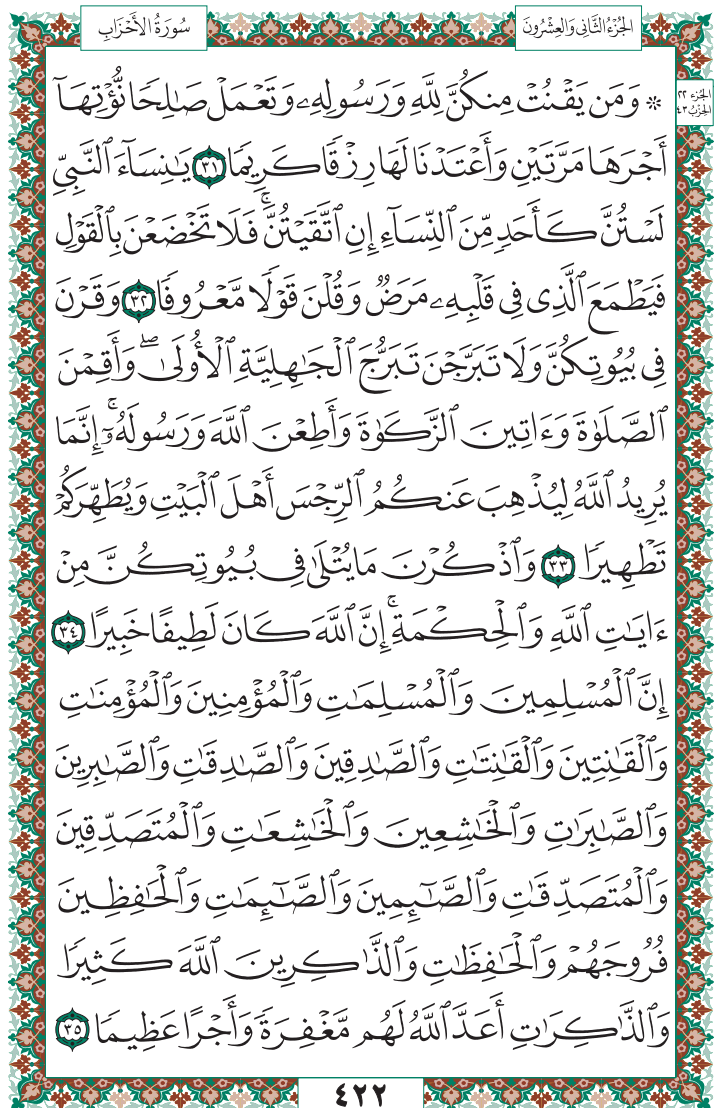 سُورَةُ الأَحْزَابِ
الجُزْءُ الثَّانِي وَالعِشْرُونَ
الجزء ٢٢
الحزب ٤٣
۞ وَمَن يَقْنُتْ مِنكُنَّ لِلَّهِ وَرَسُولِهِۦ وَتَعْمَلْ صَـٰلِحًا نُّؤْتِهَآ
أَجْرَهَا مَرَّتَيْنِ وَأَعْتَدْنَا لَهَا رِزْقًا كَرِيمًا ٣١ يَـٰنِسَآءَ ٱلنَّبِىِّ
لَسْتُنَّ كَأَحَدٍ مِّنَ ٱلنِّسَآءِ إِنِ ٱتَّقَيْتُنَّ ۚ فَلَا تَخْضَعْنَ بِٱلْقَوْلِ
فَيَطْمَعَ ٱلَّذِى فِى قَلْبِهِۦ مَرَضٌ وَقُلْنَ قَوْلًا مَّعْرُوفًا ٣٢ وَقَرْنَ
فِى بُيُوتِكُنَّ وَلَا تَبَرَّجْنَ تَبَرُّجَ ٱلْجَـٰهِلِيَّةِ ٱلْأُولَىٰ ۖ وَأَقِمْنَ
ٱلصَّلَوٰةَ وَءَاتِينَ ٱلزَّكَوٰةَ وَأَطِعْنَ ٱللَّهَ وَرَسُولَهُۥٓ ۚ إِنَّمَا
يُرِيدُ ٱللَّهُ لِيُذْهِبَ عَنكُمُ ٱلرِّجْسَ أَهْلَ ٱلْبَيْتِ وَيُطَهِّرَكُمْ
تَطْهِيرًا ٣٣ وَٱذْكُرْنَ مَا يُتْلَىٰ فِى بُيُوتِكُنَّ مِنْ
ءَايَـٰتِ ٱللَّهِ وَٱلْحِكْمَةِ ۚ إِنَّ ٱللَّهَ كَانَ لَطِيفًا خَبِيرًا ٣٤
إِنَّ ٱلْمُسْلِمِينَ وَٱلْمُسْلِمَـٰتِ وَٱلْمُؤْمِنِينَ وَٱلْمُؤْمِنَـٰتِ
وَٱلْقَـٰنِتِينَ وَٱلْقَـٰنِتَـٰتِ وَٱلصَّـٰدِقِينَ وَٱلصَّـٰدِقَـٰتِ وَٱلصَّـٰبِرِينَ
وَٱلصَّـٰبِرَٰتِ وَٱلْخَـٰشِعِينَ وَٱلْخَـٰشِعَـٰتِ وَٱلْمُتَصَدِّقِينَ
وَٱلْمُتَصَدِّقَـٰتِ وَٱلصَّـٰٓئِمِينَ وَٱلصَّـٰٓئِمَـٰتِ وَٱلْحَـٰفِظِينَ
فُرُوجَهُمْ وَٱلْحَـٰفِظَـٰتِ وَٱلذَّٰكِرِينَ ٱللَّهَ كَثِيرًا
وَٱلذَّٰكِرَٰتِ أَعَدَّ ٱللَّهُ لَهُم مَّغْفِرَةً وَأَجْرًا عَظِيمًا ٣٥
٤٢٢